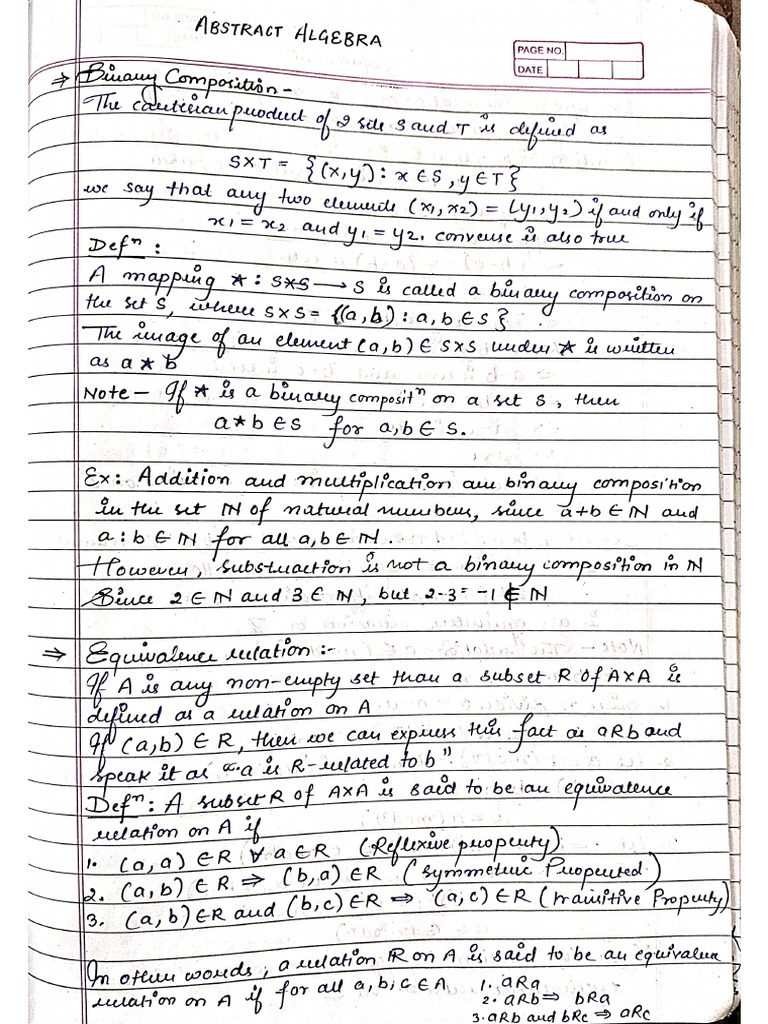 ABSTRACT ALGEBRA
PAGE NO.
DATE
⇒ Binary Composition -
The cartisian product of 2 sets S and T is defined as
S×T = {(x,y) : x ∈ S, y ∈ T}
we say that any two elements (x1, x2) = (y1, y2) if and only if
x1 = x2 and y1 = y2. converse is also true
Defⁿ :
A mapping * : S×S → S is called a binary composition on
the set S, where S×S = {(a, b) : a, b ∈ S}
The image of an element (a, b) ∈ S×S under * is written
as a * b
Note - If * is a binary compositⁿ on a set S, then
a * b ∈ S for a, b ∈ S.
Ex: Addition and multiplication are binary composition
in the set ℕ of natural numbers, since a+b ∈ ℕ and
a : b ∈ ℕ for all a, b ∈ ℕ.
However, substruaction is not a binary composition in ℕ
Since 2 ∈ ℕ and 3 ∈ ℕ, but 2-3 = -1 ∉ ℕ
⇒ Equivalence relation :-
If A is any non-empty set than a subset R of A×A is
defined as a relation on A
If (a, b) ∈ R, then we can express this fact as aRb and
speak it as "a is R-related to b"
Defⁿ : A subset R of A×A is said to be an equivalence
relation on A if
1. (a, a) ∈ R ∀ a ∈ R (Reflexive property)
2. (a, b) ∈ R ⇒ (b, a) ∈ R (symmetric Propented)
3. (a, b) ∈ R and (b, c) ∈ R ⇒ (a, c) ∈ R (transitive Property)
In other words, a relation R on A is said to be an equivalence
relation on A if for all a, b, c ∈ A 1. aRa
2. aRb ⇒ bRa
3. aRb and bRc ⇒ aRc